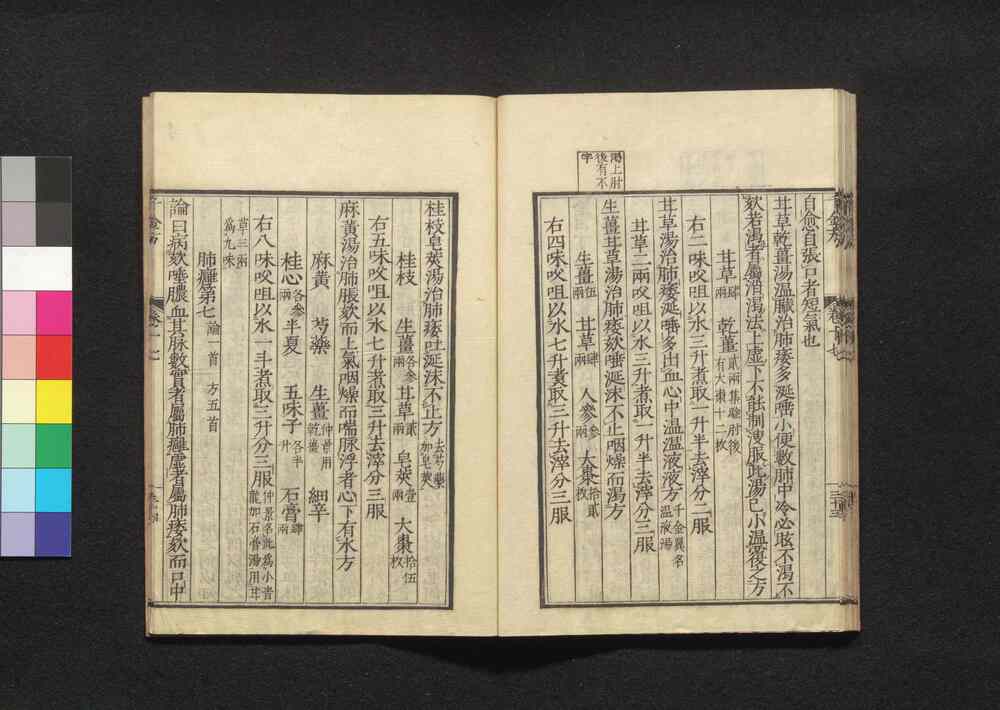 渴上肘
後有不
字
自愈自張口者短氣也
甘草乾薑湯溫臟治肺痿多涎唾小便數肺中冷必眩不渴不
欬若渴者屬消渴法上虛下不能制溲服此湯已小溫覆之方
甘草肆兩 乾薑貳兩集驗肘後有大棗十二枚
右二味㕮咀以水三升煮取一升半去滓分二服
甘草湯治肺痿涎唾多出血心中溫溫液液方千金異名溫液湯
甘草二兩㕮咀以水三升煮取一升半去滓分三服
生薑甘草湯治肺痿欬唾涎沫不止咽燥而渴方
生薑伍兩 甘草肆兩 人參參兩 大棗拾貳枚
右四味㕮咀以水七升煑取三升去滓分三服
桂枝皂莢湯治肺痿吐涎沫不止方去芍藥加皂莢
桂枝 生薑各參兩 甘草貳兩 皂莢壹兩 大棗拾伍枚
右五味㕮咀以水七升煮取三升去滓分三服
麻黃湯治肺脹欬而上氣咽燥而喘脉浮者心下有水方
麻黃 芍藥 生薑仲景用乾薑 細辛
桂心各參兩 半夏 五味子各半升 石膏肆兩
右八味㕮咀以水一斗煮取三升分三服仲景名此爲小青龍加石膏湯用甘
草三兩爲九味
肺癰第七論一首 方五首
論曰病欬唾膿血其脉數實者屬肺癰虛者屬肺痿欬而口中